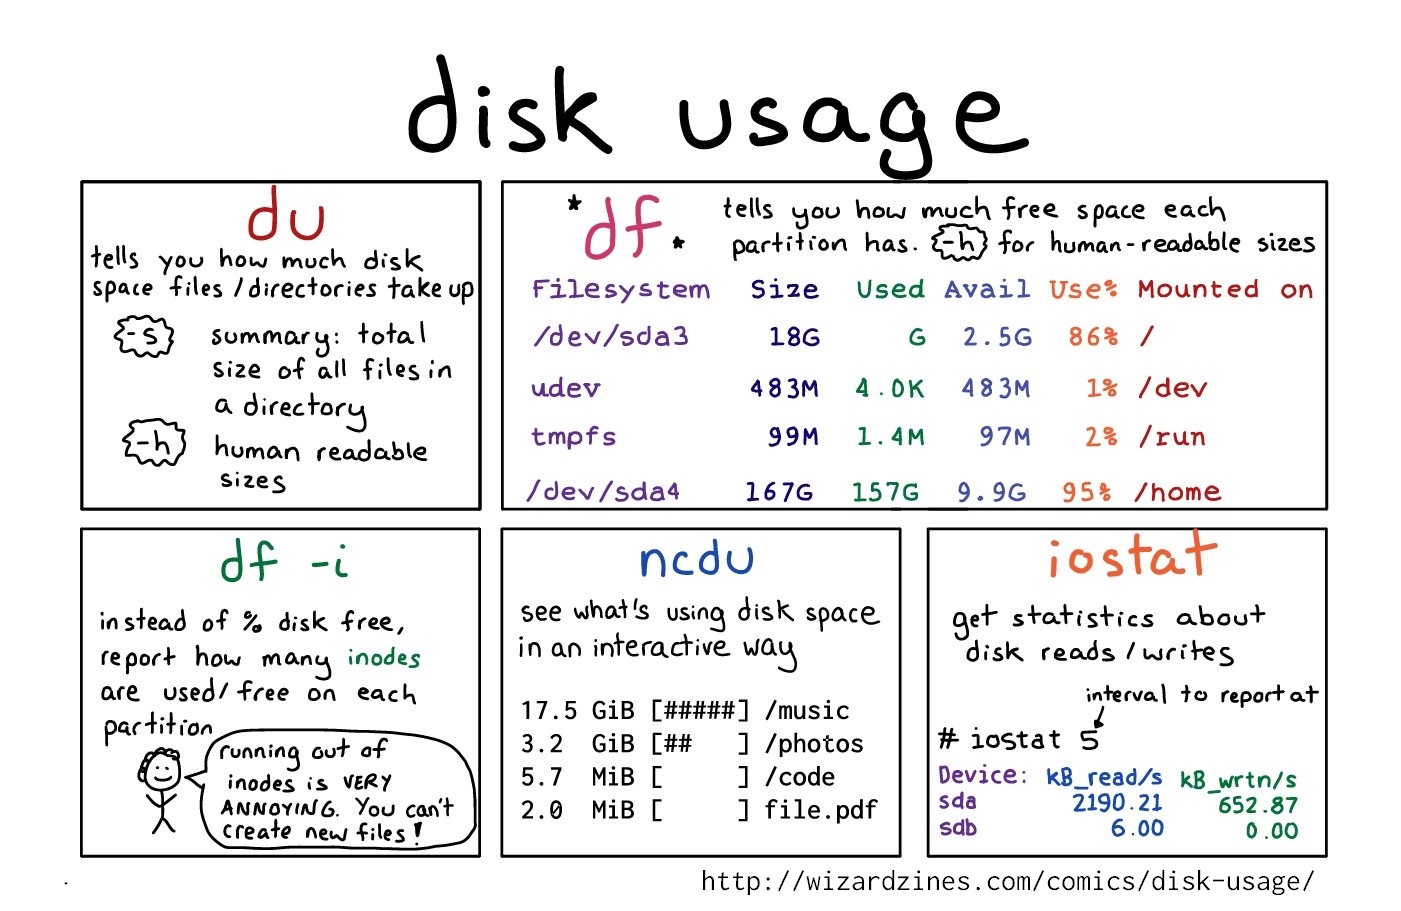 disk usage
du
tells you how much disk
space files/directories take up
-s summary: total
size of all files in
a directory
-h human readable
sizes
*df*
tells you how much free space each
partition has. -h for human-readable sizes
Filesystem Size Used Avail Use% Mounted on
/dev/sda3 18G G 2.5G 86% /
udev 483M 4.0K 483M 1% /dev
tmpfs 99M 1.4M 97M 2% /run
/dev/sda4 167G 157G 9.9G 95% /home
df -i
instead of % disk free,
report how many inodes
are used/free on each
partition
running out of
inodes is VERY
ANNOYING. You can't
create new files!
ncdu
see what's using disk space
in an interactive way
17.5 GiB [#####] /music
3.2 GiB [##   ] /photos
5.7 MiB [     ] /code
2.0 MiB [     ] file.pdf
iostat
get statistics about
disk reads/writes
interval to report at
# iostat 5
Device: kB_read/s kB_wrtn/s
sda 2190.21 652.87
sdb 6.00 0.00
http://wizardzines.com/comics/disk-usage/